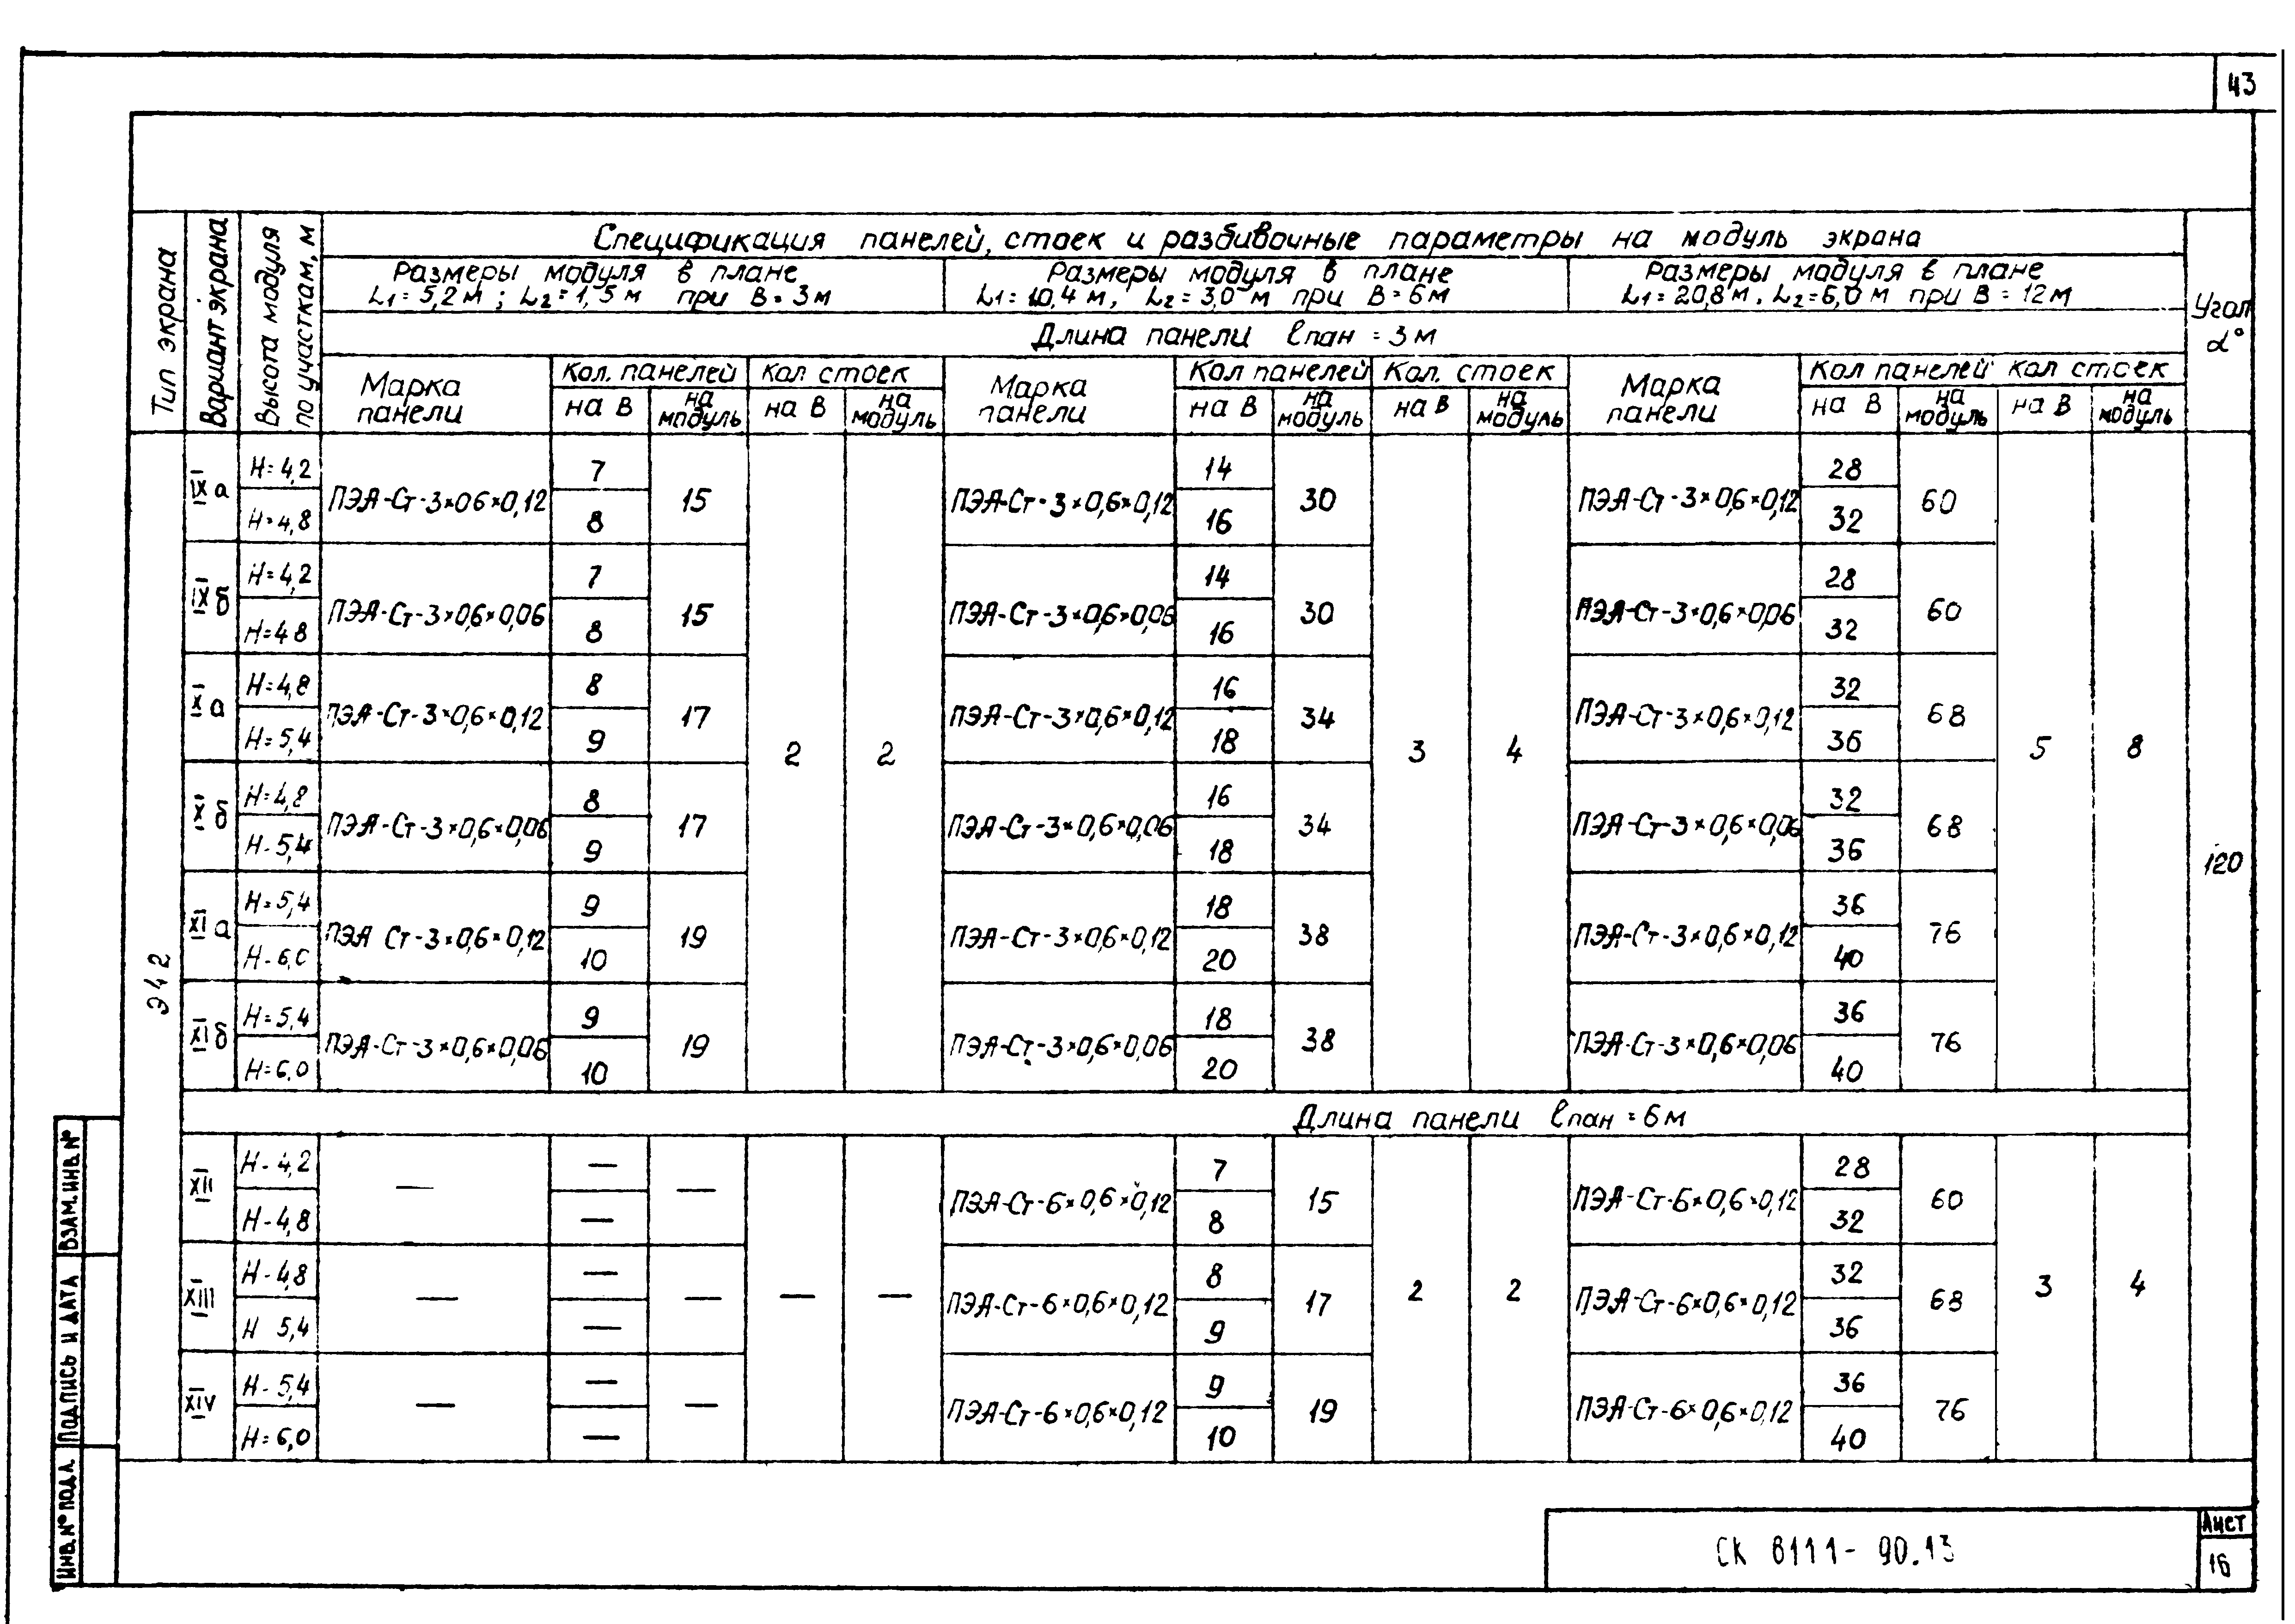 43
Тип экрана
Вариант экрана
Высота модуля по участкам, м
Спецификация панелей, стоек и разбивочные параметры на модуль экрана
Угол α°
Размеры модуля в плане L1=5,2м; L2=1,5м при В=3м
Размеры модуля в плане L1=10,4м, L2=3,0м при В=6м
Размеры модуля в плане L1=20,8м, L2=6,0м при В=12м
Длина панели lпан = 3м
Марка панели Кол. панелей Кол стоек Марка панели Кол панелей Кол. стоек Марка панели Кол панелей Кол стоек
на В на модуль на В на модуль на В на модуль на В на модуль на В на модуль на В на модуль
Э42
120
IXа H=4,2 ПЭА-Ст-3×06×0,12 7 15 ПЭА-Ст-3×0,6×0,12 14 30 ПЭА-Ст-3×0,6×0,12 28 60
H=4,8 8 16 32
IXб H=4,2 ПЭА-Ст-3×0,6×0,06 7 15 ПЭА-Ст-3×0,6×0,06 14 30 ПЭА-Ст-3×0,6×0,06 28 60
H=48 8 16 32
Xа H=4,8 ПЭА-Ст-3×0,6×0,12 8 17 ПЭА-Ст-3×0,6×0,12 16 34 ПЭА-Ст-3×0,6×0,12 32 68
H=5,4 9 18 36
2 2 3 4 5 8
Xб H=4,8 ПЭА-Ст-3×0,6×0,06 8 17 ПЭА-Ст-3×0,6×0,06 16 34 ПЭА-Ст-3×0,6×0,06 32 68
H-5,4 9 18 36
XIа H=5,4 ПЭА Ст-3×0,6×0,12 9 19 ПЭА-Ст-3×0,6×0,12 18 38 ПЭА-Ст-3×0,6×0,12 36 76
H-6,0 10 20 40
XIб H=5,4 ПЭА-Ст-3×0,6×0,06 9 19 ПЭА-Ст-3×0,6×0,06 18 38 ПЭА-Ст-3×0,6×0,06 36 76
H=6,0 10 20 40
Длина панели lпан = 6м
XII H-4,2 — — — ПЭА-Ст-6×0,6×0,12 7 15 ПЭА-Ст-6×0,6×0,12 28 60
H-4,8 — 8 32
XIII H-4,8 — — — — — ПЭА-Ст-6×0,6×0,12 8 17 2 2 ПЭА-Ст-6×0,6×0,12 32 68 3 4
H 5,4 — 9 36
XIV H-5,4 — — — ПЭА-Ст-6×0,6×0,12 9 19 ПЭА-Ст-6×0,6×0,12 36 76
H=6,0 — 10 40
ИНВ. № ПОДЛ. ПОДПИСЬ И ДАТА ВЗАМ. ИНВ. №
СК 8111-90.13
Лист
16